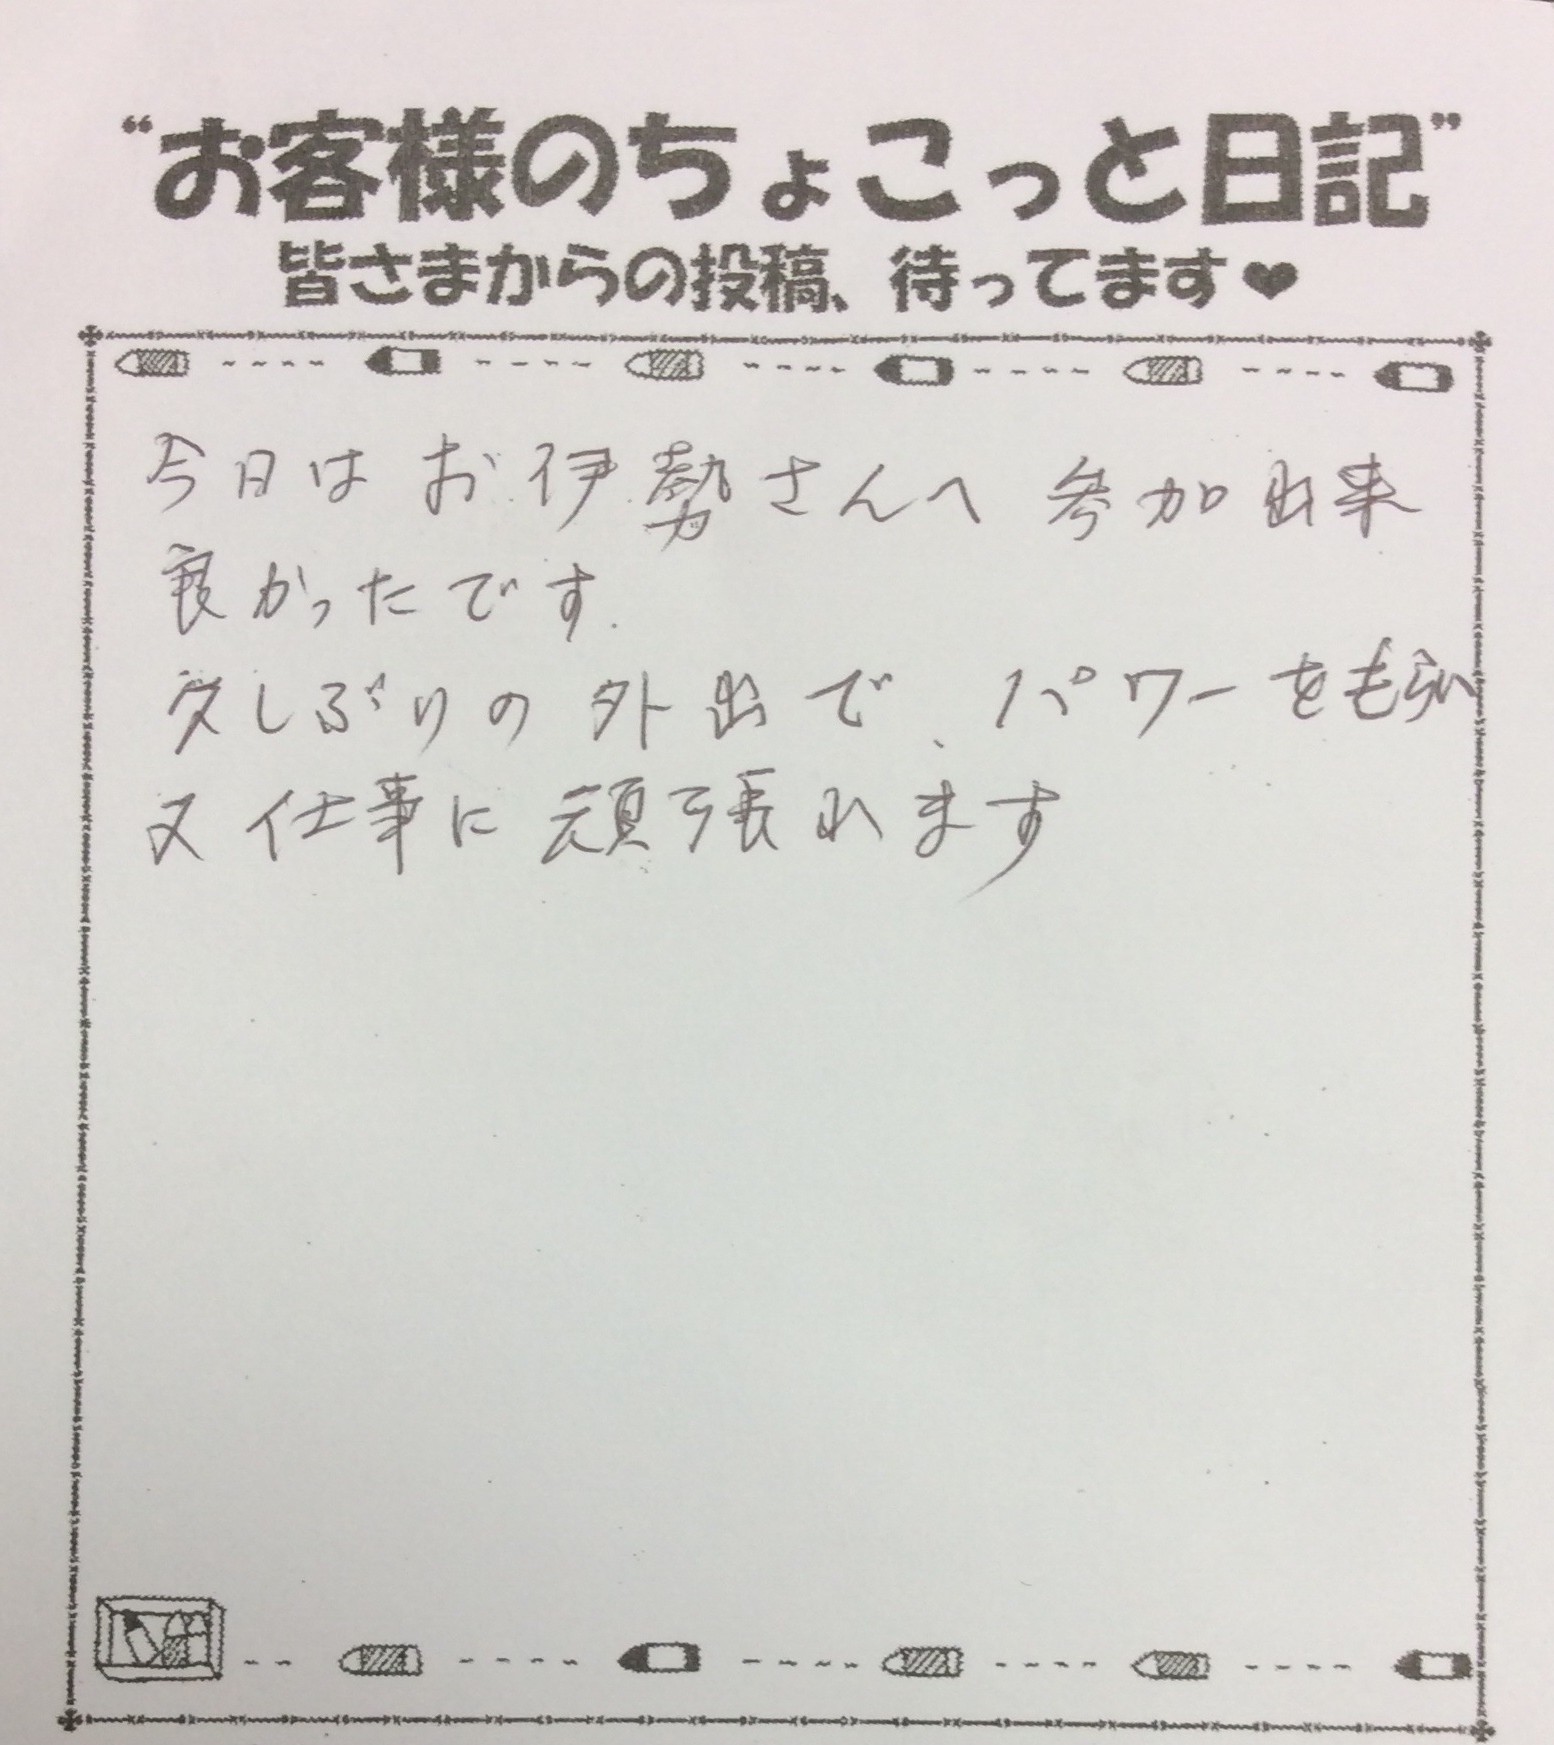 “お客様のちょこっと日記”
皆さまからの投稿、待ってます♥
今日はお伊勢さんへ参加出来
良かったです.
久しぶりの外出で、パワーをもらい
又仕事に頑張れます